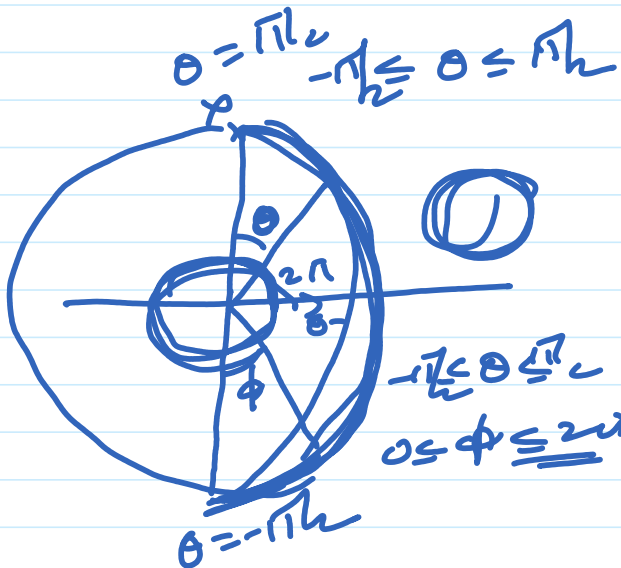 θ = π/2
-π/2 ≤ θ ≤ π/2
θ
2π
θ
ϕ
-π/2 ≤ θ ≤ π/2
0 ≤ ϕ ≤ 2π
θ = -π/2